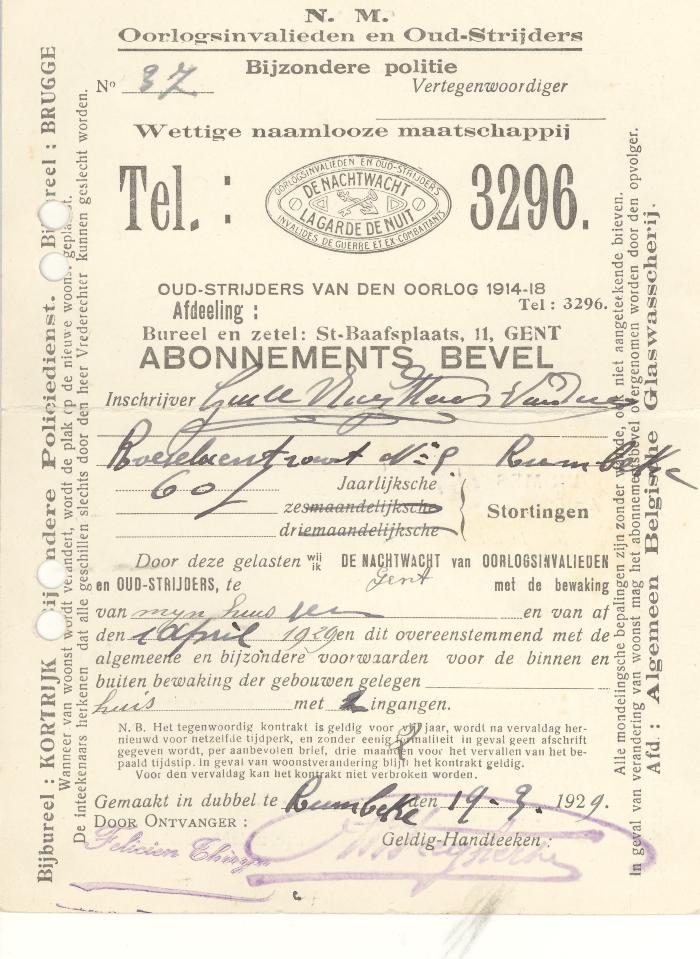 N. M.
Oorlogsinvalieden en Oud-Strijders
Bijzondere politie
No 37 Vertegenwoordiger
Wettige naamlooze maatschappij
Tel. : 3296.
OORLOGSINVALIEDEN EN OUD-STRIJDERS
DE NACHTWACHT
LA GARDE DE NUIT
INVALIDES DE GUERRE ET EX COMBATTANTS
OUD-STRIJDERS VAN DEN OORLOG 1914-18
Afdeeling : Tel : 3296.
Bureel en zetel: St-Baafsplaats, 11, GENT
ABONNEMENTS BEVEL
Inschrijver
No 9. Rumbeke
60 Jaarlijksche
zesmaandelijksche Stortingen
driemaandelijksche
Door deze gelasten wij ik DE NACHTWACHT van OORLOGSINVALIEDEN
en OUD-STRIJDERS, te Gent met de bewaking
van mijn huis en van af
den 1 April 1929 en dit overeenstemmend met de
algemeene en bijzondere voorwaarden voor de binnen en
buiten bewaking der gebouwen gelegen
huis met 2 ingangen.
N. B. Het tegenwoordig kontrakt is geldig voor jaar, wordt na vervaldag her-
nieuwd voor hetzelfde tijdperk, en zonder eenig formaliteit in geval geen afschrift
gegeven wordt, per aanbevolen brief, drie maanden voor het vervallen van het be-
paald tijdstip. In geval van woonstverandering blijft het kontrakt geldig.
Voor den vervaldag kan het kontrakt niet verbroken worden.
Gemaakt in dubbel te Rumbeke den 19-3. 1929.
DOOR ONTVANGER : Geldig-Handteeken :
Felicien
Bijbureel : KORTRIJK Bijzondere Policiedienst. Bijbureel : BRUGGE
Wanneer van woonst wordt verandert, wordt de plak op de nieuwe woonst geplaatst.
De inteekenaars herkenen dat alle geschillen slechts door den heer Vrederechter kunnen geslecht worden.
Alle mondelingsche bepalingen zijn zonder waarde, ook niet aangeteekende brieven.
In geval van verandering van woonst mag het abonnementsbevel overgenomen worden door den opvolger.
Afd. : Algemeen Belgische Glaswasscherij.